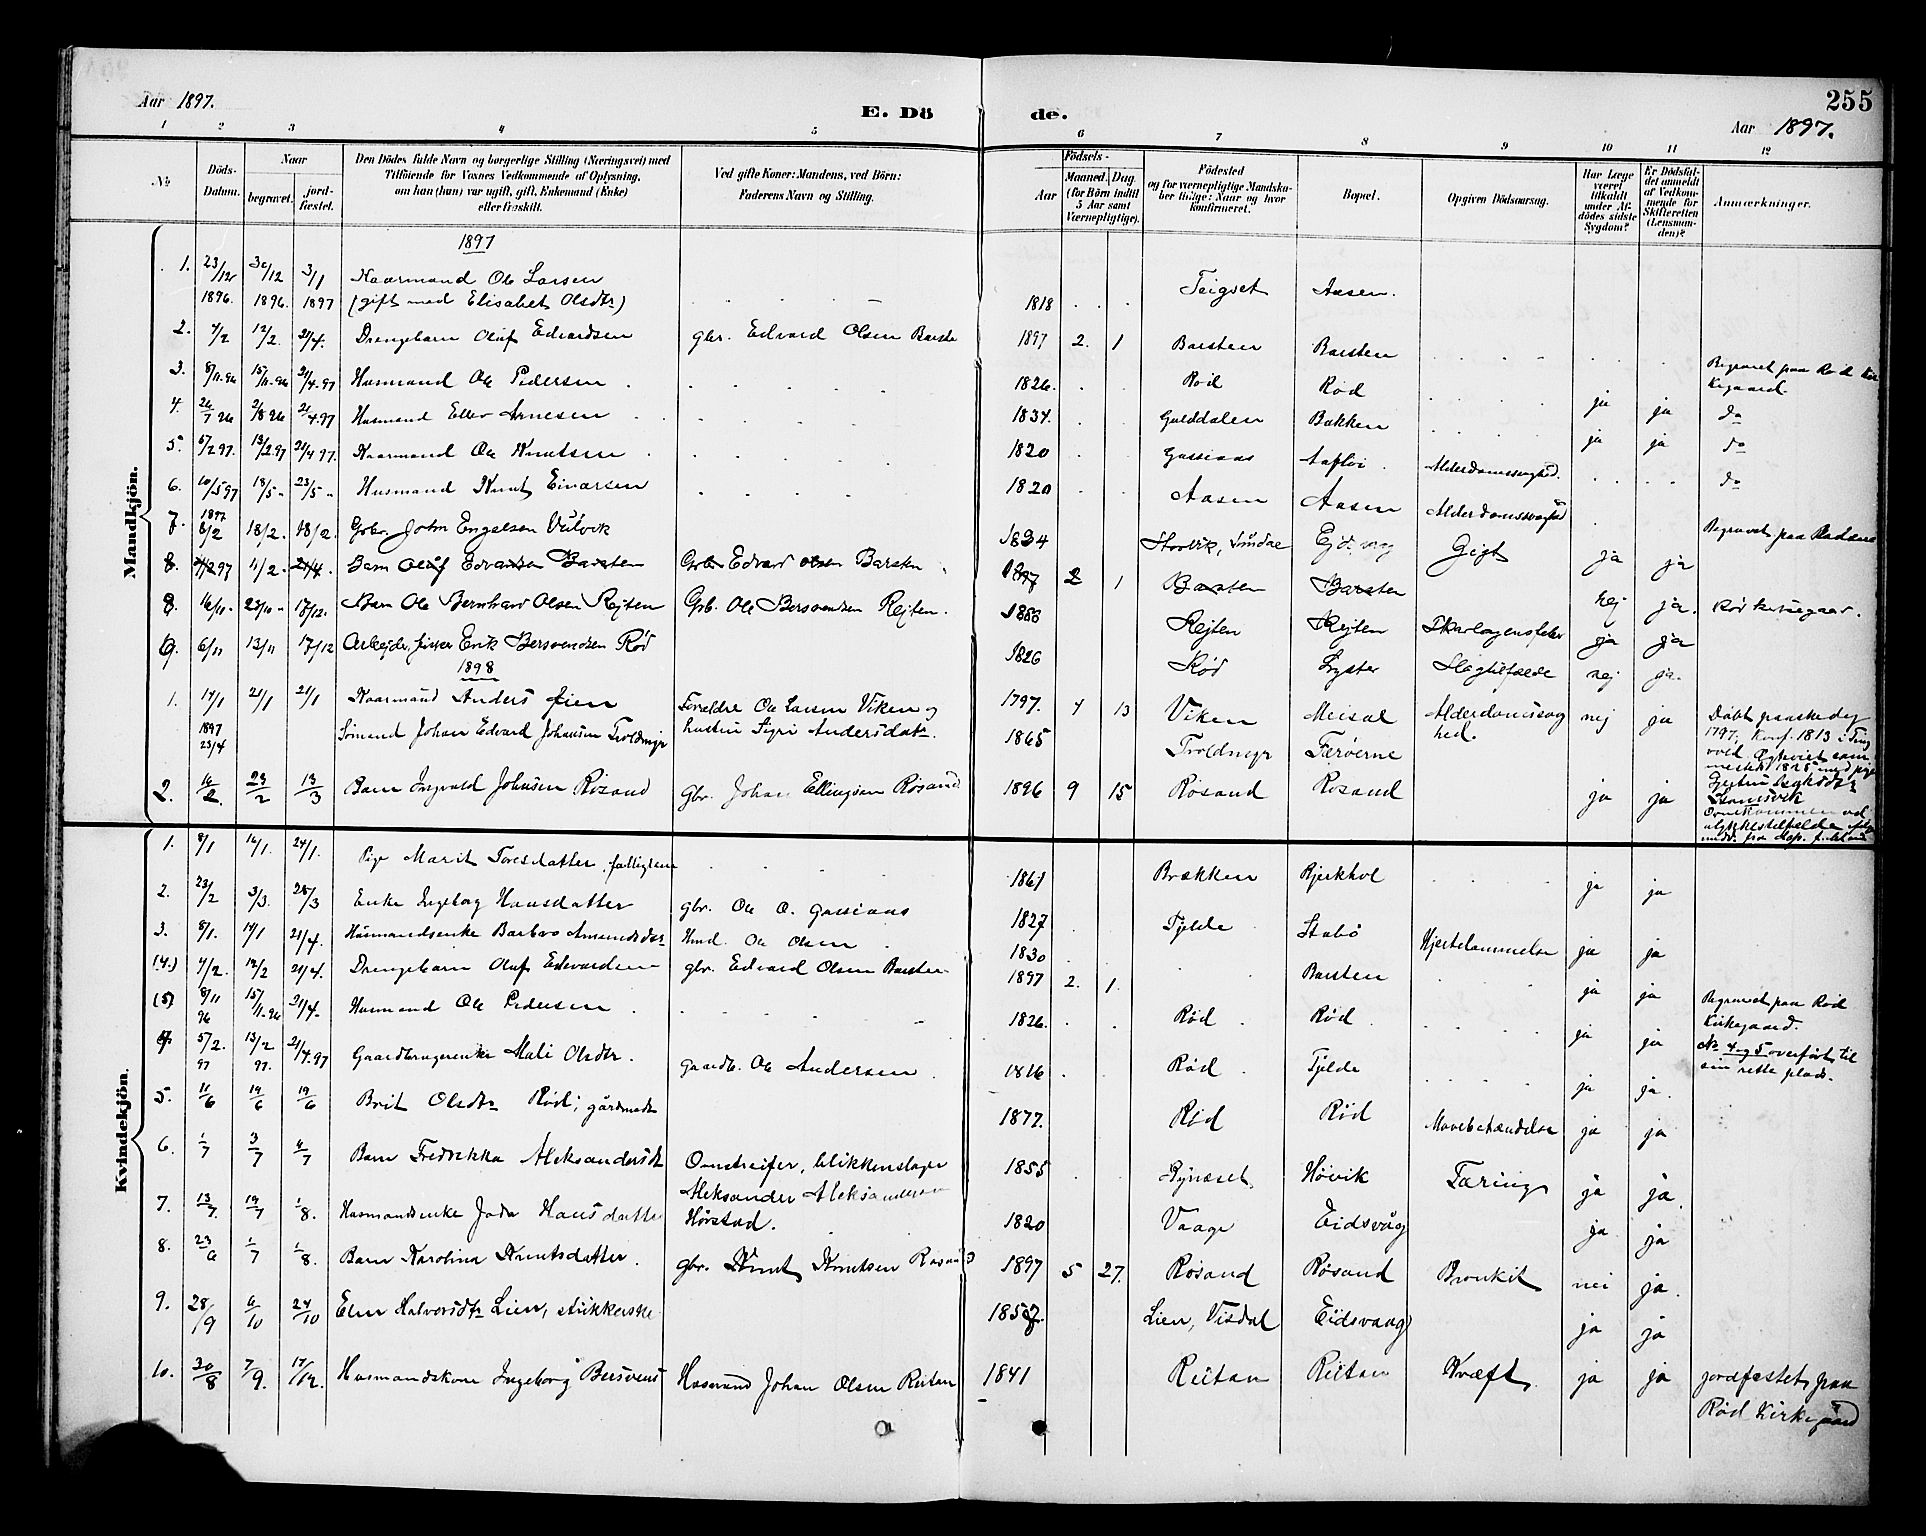 Aar 1897.
E. Dö
de.
255
Aar 1897.
1 2 3 4 5 6 7 8 9 10 11 12
No
Döds-Datum.
Naar
begravet.
jord-fæstet.
Den Dödes fulde Navn og borgerlige Stilling (Næringsvei) med
Tilföiende for Voxnes Vedkommende af Oplysning,
om han (hun) var ugift, gift, Enkemand (Enke)
eller fraskilt.
Ved gifte Koner: Mandens, ved Börn:
Faderens Navn og Stilling.
Födsels-
Aar
Maaned. Dag
(for Börn indtil
5 Aar samt
Værnepligtige).
Födested
og for værnepligtige Mandska-
ber tillige: Naar og hvor
konfirmeret.
Bopæl.
Opgiven Dödsaarsag.
Har Læge
været
tilkaldt
under Af-
dödes sidste
Sygdom?
Er Dödsfal-
det anmeldt
af Vedkom-
mende for
Skifteretten
(Lensman-
den)?
Anmærkninger.
Mandkjön.
1897
1. 23/12 30/12 3/1 Kaarmand Ole Larsen Teigset Aasen.
1896. 1896. 1897 (gift med Elisabet Olsdtr) 1818
2. 4/2 12/2. 21/4. Drengebarn Oluf Edvardsen gbr. Edvard Olsen Barste 1897 2. 1 Barsten Barsten
3. 8/11.96 15/11.96 21/4.97 Husmand Ole Pedersen 1826. Röd Röd ja ja Begravet paa Röd Kir
kegaard.
4. 26/7 96 2/8 96 21/4.97 Husmand Ellev Arnesen 1834. Gulddalen Bakken ja ja do
5. 5/2 97. 13/2 97 21/4 97. Kaarmand Ole Knutsen 1820 Gussiaas Alderdomssvaghed. do
6. 10/5 97 18/5 - 23/5 - Husmand Knut Einarsen 1820 Aasen Aasen Alderdomssvaghed do
7. 1897 6/2 18/2. 18/2. Gbr. John Engelsen Utvik 1834 Gigt ja ja Begravet paa Rødæne
8. 4/2 97 11/2 - 21/4. Barn Oluf Edvardsen Barsten Gbr Edvard Olsen Barsten 1897 2 1 Barsten Barsten nej ja. Röd kirkegaar.
8. 16/10 - 23/10 - 17/12. Barn Ole Bernhard Olsen Rejten Grb. Ole Bersvendsen Rejten. 1888 Rejten Rejten Skarlagensfeber ja ja
9. 6/11 13/11 17/12 Arbejder, fisker Erik Bersvendsen Rød 1826 Rød Lyster Slagtilfælde nej ja.
1898
1. 14/1 21/1 21/1 Kaarmand Anders Forældre Ole Larsen Viken og 1797. 4 13 Viken Meisal Alderdomssvag nej ja Døbt paaskedag
hed.
1797. Konf. 1813 i Ting
1897 23/4 Sömand Johan Edvard Johansen Troldmyr hustru Sigri Andersdatr. 1865 Troldmyr Færöerne
2. 16/2 23/2 13/3 Barn Ingvald Johansen Rösand Gbr. Johan Ellingsen Rösand 1896 9 15 Rösand Rösand ja ja
Kvindekjön.
1. 8/1 16/1. 24/1. Pige Marit Toresdatter, fattiglem 1861 Brækken Bjerkhol ja ja
2. 23/2 3/3. 28/3 Enke Ingeborg Hansdatter gbr. Ole O. Gussiaas 1827 Tjelde Stabö
3. 8/1. 14/1 21/4. Husmandsenke Barbro Amundsdatr Hmd. Ole Olsen 1830 Hjertelammelse ja ja
(4.) 4/2. 12/2 21/4. Drengebarn Oluf Edvardsen gbr. Edvard Olsen Barsten 1897 2. 1. Barsten ja ja
(5) 8/11 96 15/11.96 21/4. Husmand Ole Pedersen 1826. Röd Röd ja ja Begravet paa Röd
Kirkegaard.
4. 5/2. 97 13/2 97. 21/4.97 Gaardbrugerenke Mali Olsdtr. gaardb. Ole Andersen 1816 Röd Tjelde ja ja. No 4 og 5 overført til
sin rette plads.
5. 11/6 19/6 19/6 Brit Olsdtr Röd; 1877. Röd Röd Mavebetændelse ja ja
6. 1/7 3/7 4/7 Barn Fredrikka Aleksandersdt Omstreifer, blikkenslager 1855 Bynæset Höivik Tæring ja ja.
Aleksander Aleksandersen
7. 13/7. 19/7 1/8. Husmandsenke Hansdatter Hörstad. 1820 Vaage Eidsvåg ja ja
8. 23/6 1/7 1/8. Barn Karolina Knutsdatter. gbr. Knut Knutsen Rösand 1897 5 27. Rösand Rösand Bronkit nei ja.
9. 28/9 6/10 24/10 Elen Halvorsdtr Lien, 1857. Lien, Visdal Eidsvaag ja ja
10. 30/8 7/9. 17/12. Husmandskone Ingeborg Bersvens Husmand Johan Olsen Reitan 1841 Reitan Reitan Kræft ja ja jordfæstet paa
Röd Kirkegaard